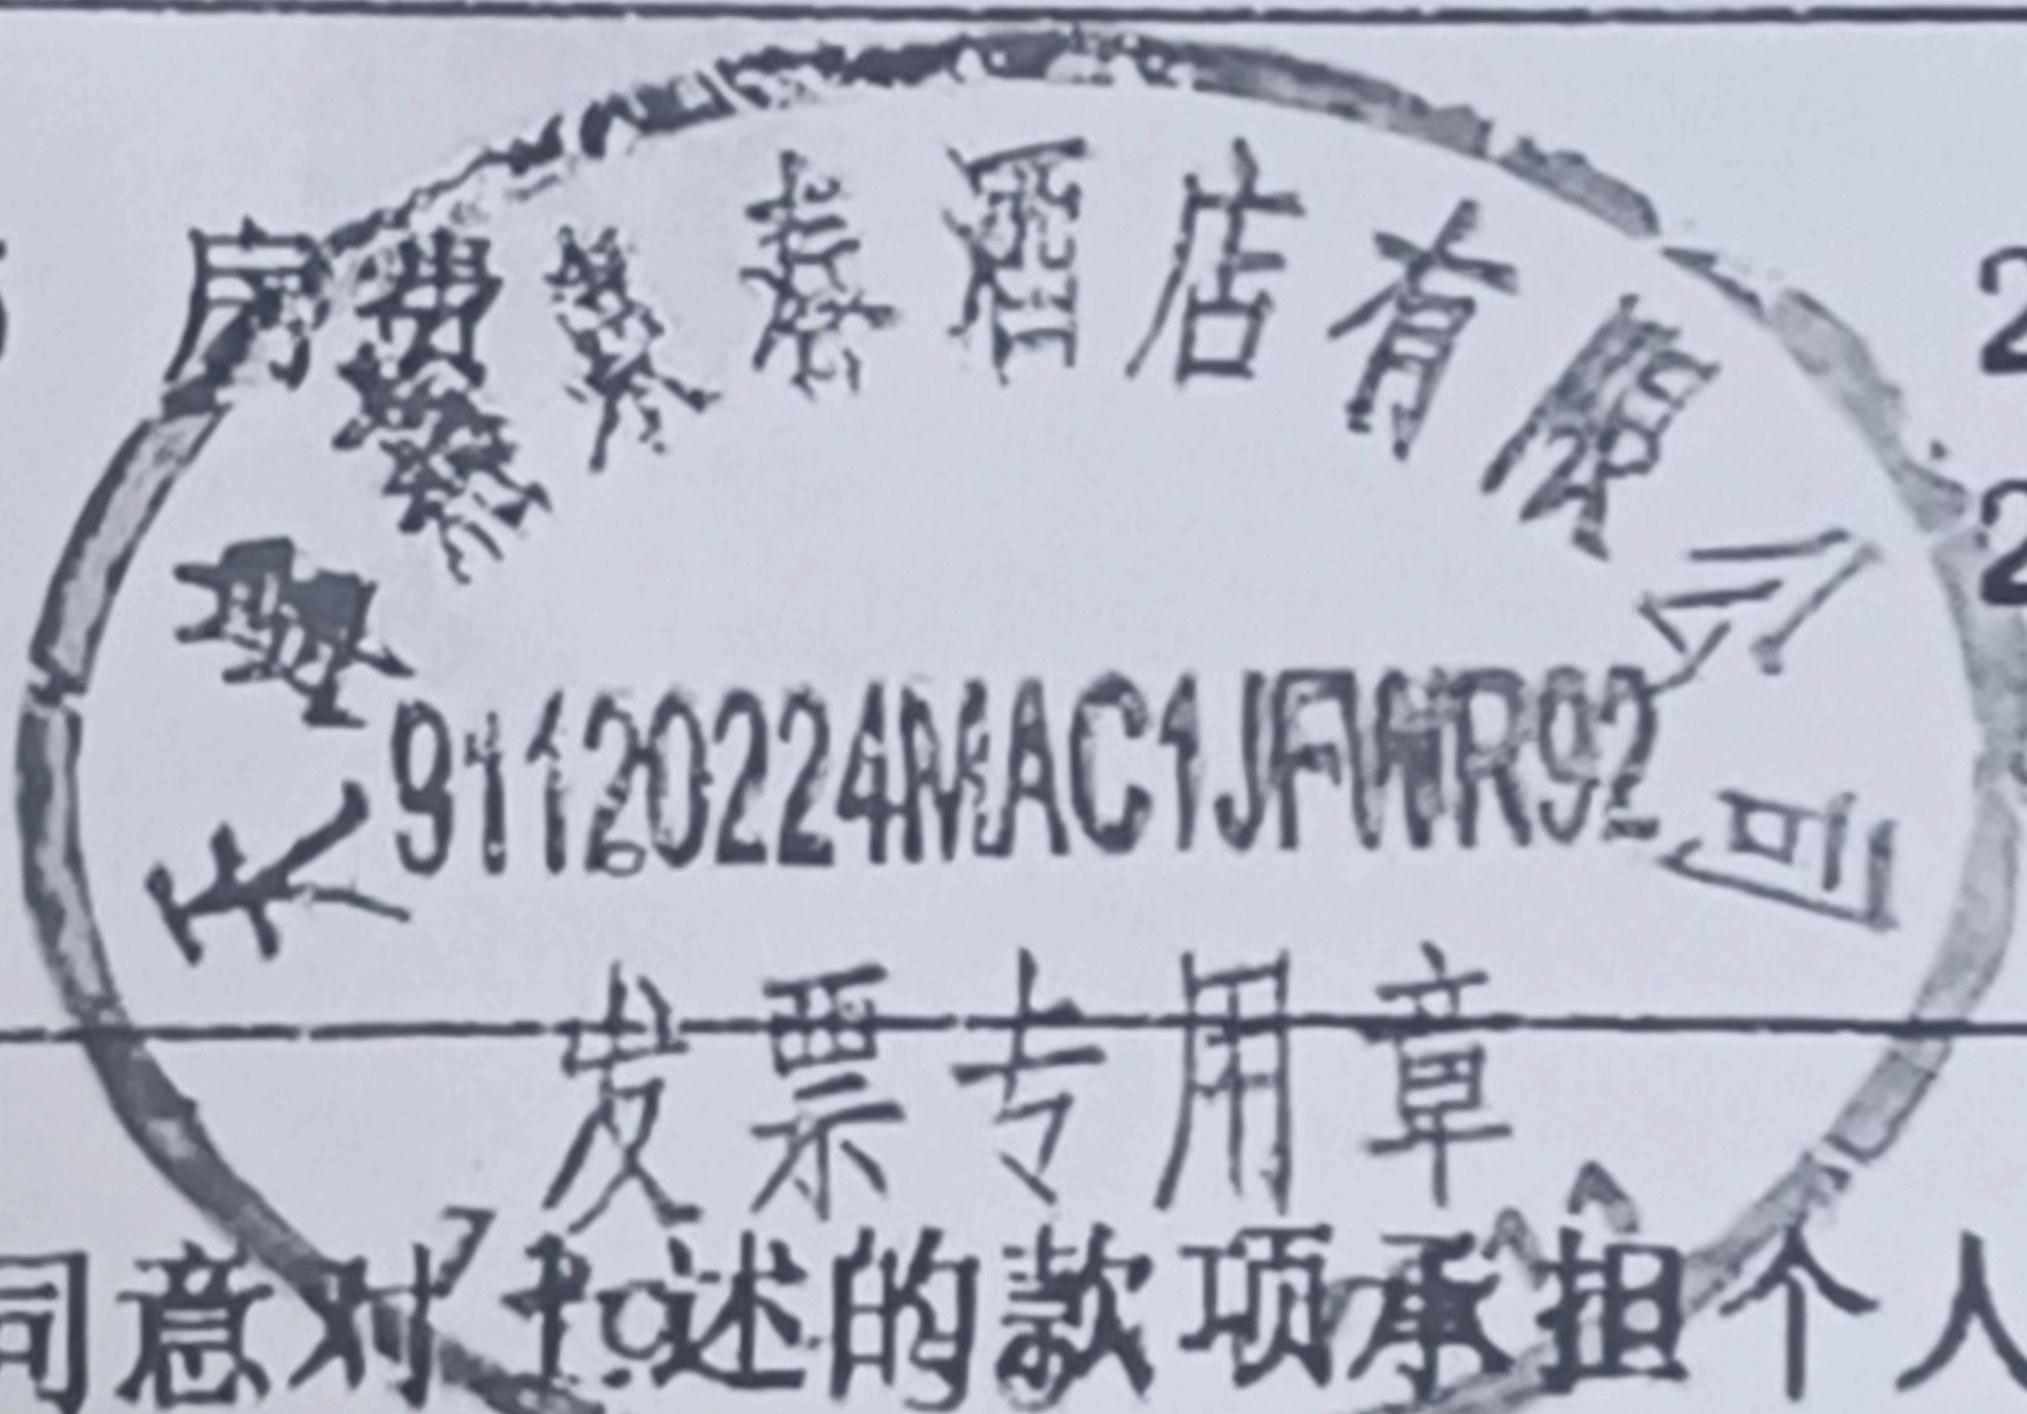 5 房费 2
2
天津 泰酒店有限公司
91120224MAC1JFWR92
发票专用章
同意对上述的款项承担个人